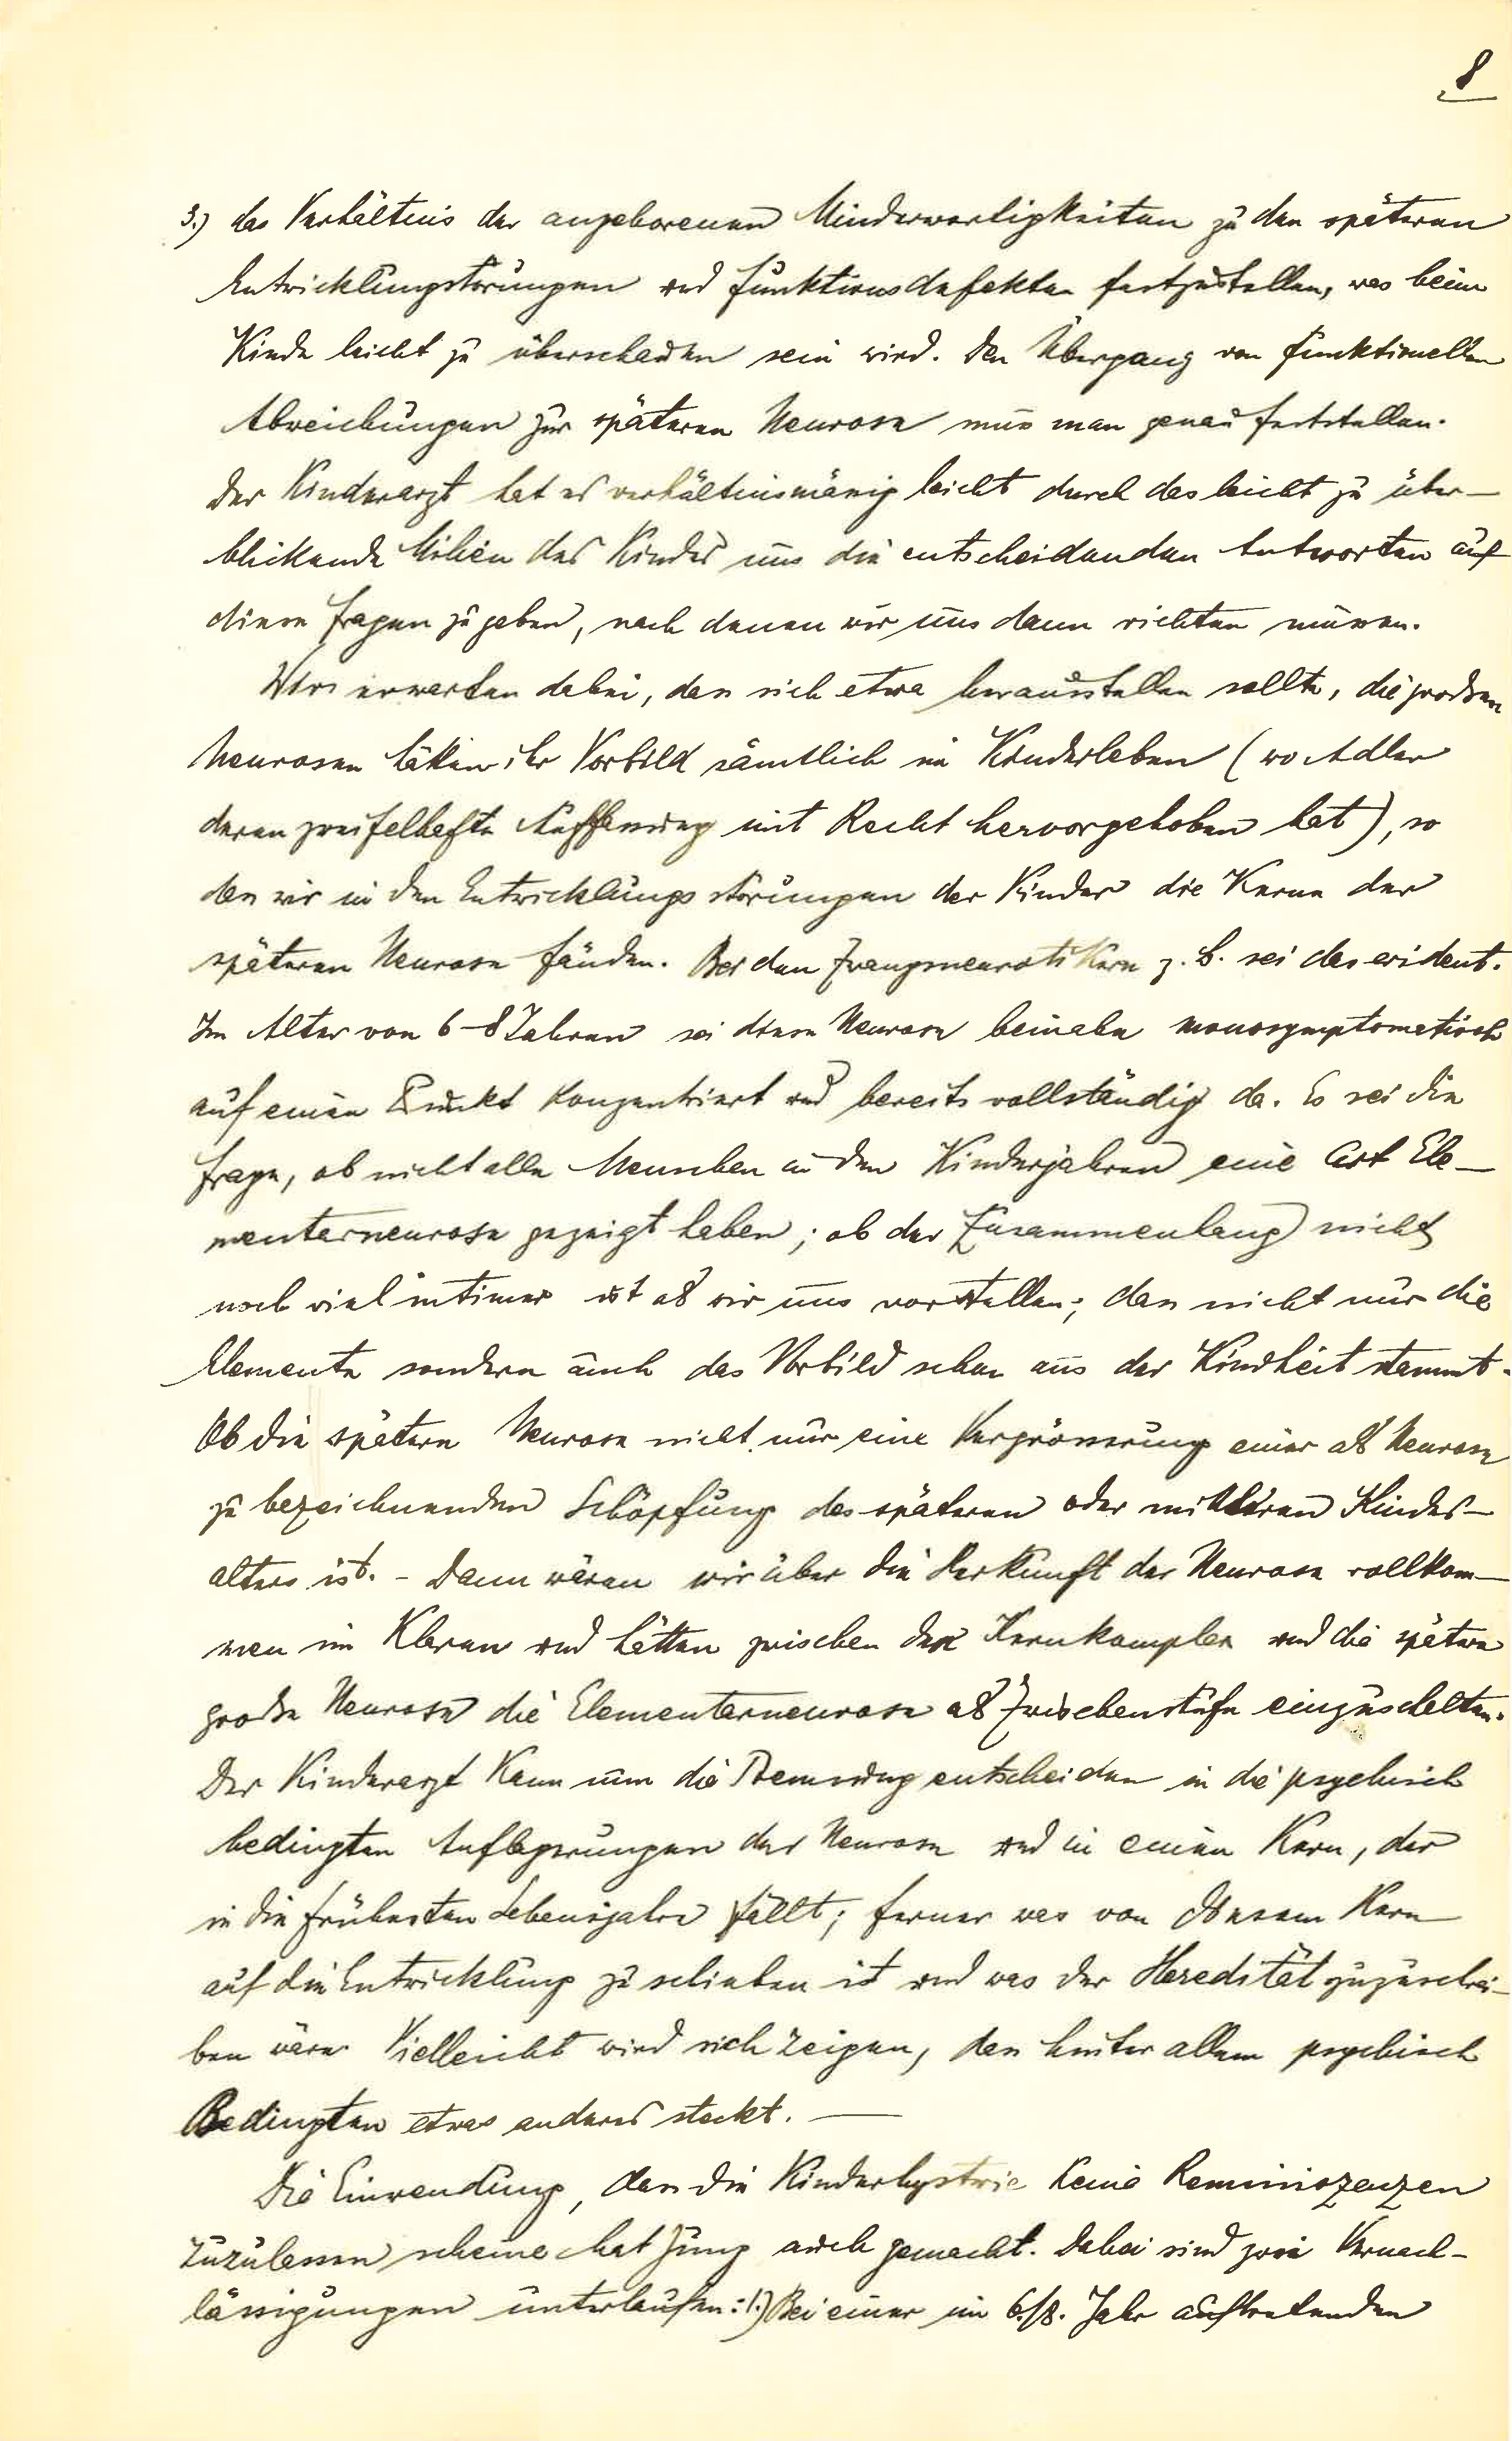 8
3.) das Verhältnis der angeborenen Minderwertigkeiten zu den späteren
Entwicklungsstörungen und Funktionsdefekten festzustellen, was beim
Kinde leicht zu überschauen sein wird. Den Übergang von funktionellen
Abweichungen zur späteren Neurose muss man genau feststellen.
Der Kinderarzt hat es verhältnismässig leicht durch das leicht zu über-
blickende Milieu des Kindes uns die entscheidenden Antworten auf
diese Fragen zu geben, nach denen wir uns dann richten müssen.
Wir erwarten dabei, dass sich etwa herausstellen sollte, die grossen
Neurosen hätten ihr Vorbild sämtlich im Kinderleben (wo Adler
deren zweifelhafte Auffassung mit Recht hervorgehoben hat), so
dass wir in den Entwicklungsstörungen der Kinder die Kerne der
späteren Neurose fänden. Bei den Zwangsneurotikern z. B. sei das evident.
Im Alter von 6-8 Jahren sei diese Neurose beinahe monosymptomatisch
auf einen Punkt konzentriert und bereits vollständig da. Es sei die
Frage, ob nicht alle Menschen in den Kinderjahren eine Art Ele-
mentarneurose gezeigt haben; ob der Zusammenhang nicht
noch viel intimer ist als wir uns vorstellen; dass nicht nur die
Elemente sondern auch das Vorbild schon aus der Kindheit stammt.
Ob die spätere Neurose nicht nur eine Vergrösserung einer als Neurose
zu bezeichnenden Schöpfung des späteren oder mittleren Kindes-
alters ist. - Dann wären wir über die Herkunft der Neurose vollkom-
men im Klaren und hätten zwischen den Kernkomplex und die spätere
grosse Neurose die Elementarneurose als Zwischenstufe einzuschalten.
Der Kinderarzt kann nun die Trennung entscheiden in die psychisch
bedingten Auflagerungen der Neurose und in einen Kern, der
in die frühesten Lebensjahre fällt; ferner was von diesem Kern
auf die Entwicklung zu schieben ist und was der Heredität zuzuschrei-
ben wäre. Vielleicht wird sich zeigen, dass hinter allem psychisch
Bedingten etwas anderes steckt. —
Die Einwendung, dass die Kinderhysterie keine Reminiszenzen
zuzulassen scheine hat Jung auch gemacht. Dabei sind zwei Vernach-
lässigungen unterlaufen: 1.) Bei einer im 6./8. Jahr auftretenden